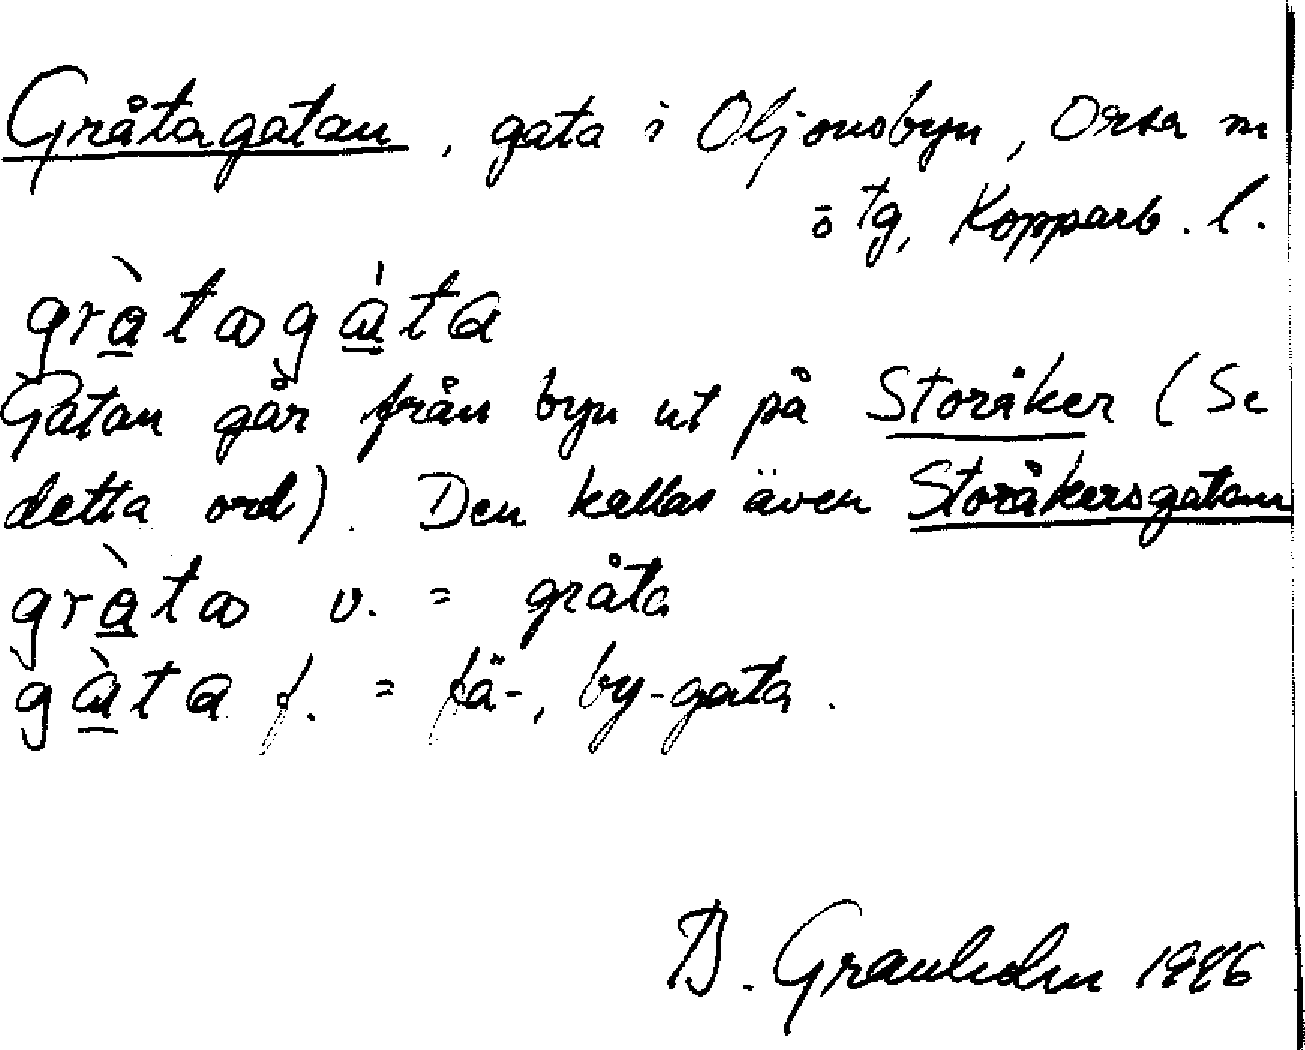 Gråtagatan, gata i Oljonsbyn, Orsa m
ö tg, Kopparb. l.
gràtagáta
Gatan går från byn ut på Storåker (Se
detta ord). Den kallas även Storåkersgatan
gràta v. = gråta
gàta f. = fä-, by-gata.
B. Granholm